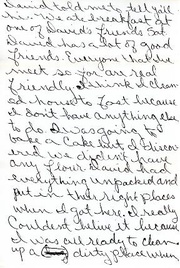 David told me to tell you
hi. We ate breakfast at
one of David's friends Sat.
David has a lot of good
friends. Everyone that I've
met so far are real
friendly. I think I clean-
ed house to fast because
I don't have anything else
to do. I was going to
bake a cake but I discov-
ered we didn't have
any flour. David had
everything unpacked and
put in their right places
when I got here. I really
couldn't belive it because
I was all ready to clean
up a dirty place when